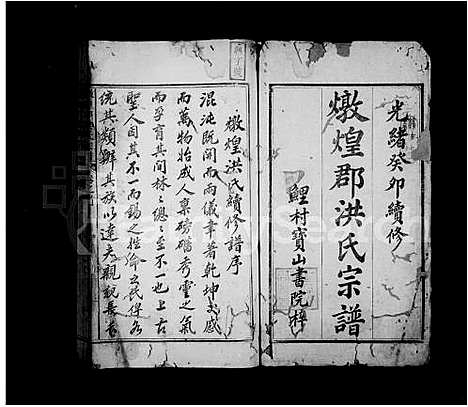 光緒癸卯續修
燉煌郡洪氏宗譜
鯉村寶山書院梓
燉煌洪氏續修譜序
混沌既開而兩儀事著乾坤交感
而萬物始成人稟磅礴秀靈之氣
而孕育其間林々總々至不一也上古
聖人因其不一而錫之姓俾
統其類辦其族以達夫親親長長